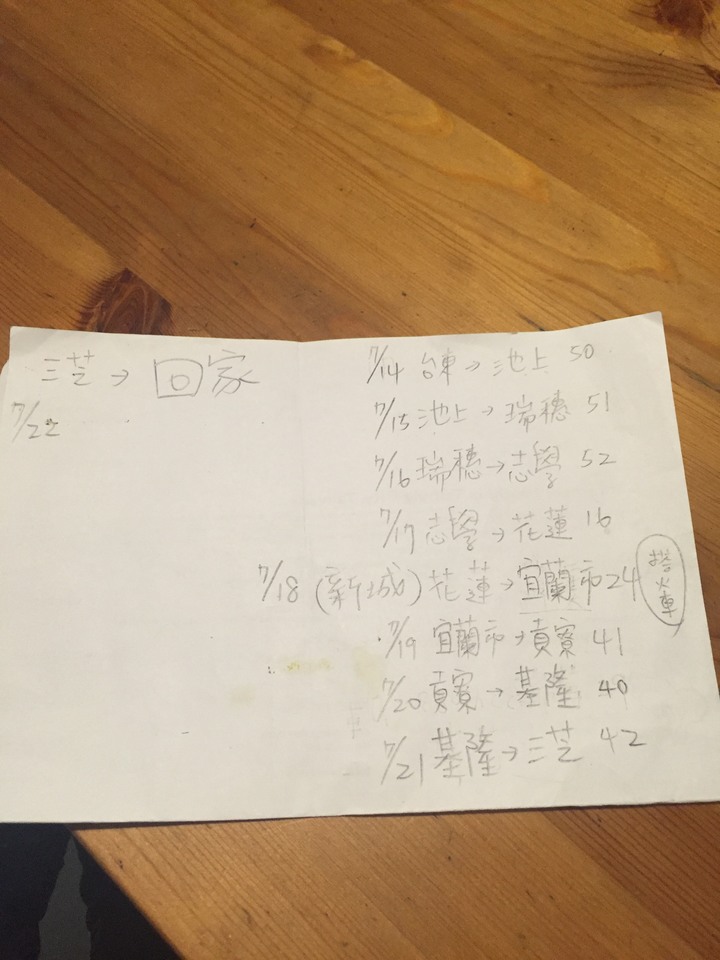 三芝→回家
7/22
7/14 台東→池上 50
7/15 池上→瑞穗 51
7/16 瑞穗→志學 52
7/17 志學→花蓮 16
7/18 (新城) 花蓮→宜蘭市 24 搭火車
7/19 宜蘭市→貢寮 41
7/20 貢寮→基隆 40
7/21 基隆→三芝 42